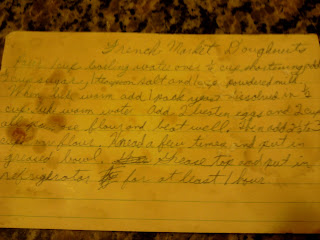 French Market Doughnuts
Put 1 cup boiling water over ¼ cup shortening, add
cup sugar, 1 teaspoon salt and powdered milk.
When luke warm add 1 pack yeast dissolved in ½
cup luke warm water. Add 2 beaten eggs and 2 cup
flour and beat well. Then add 2½ to 3
cups more flour. Knead a few times and put in
greased bowl. Grease top and put in
refrigerator for at least 1 hour.